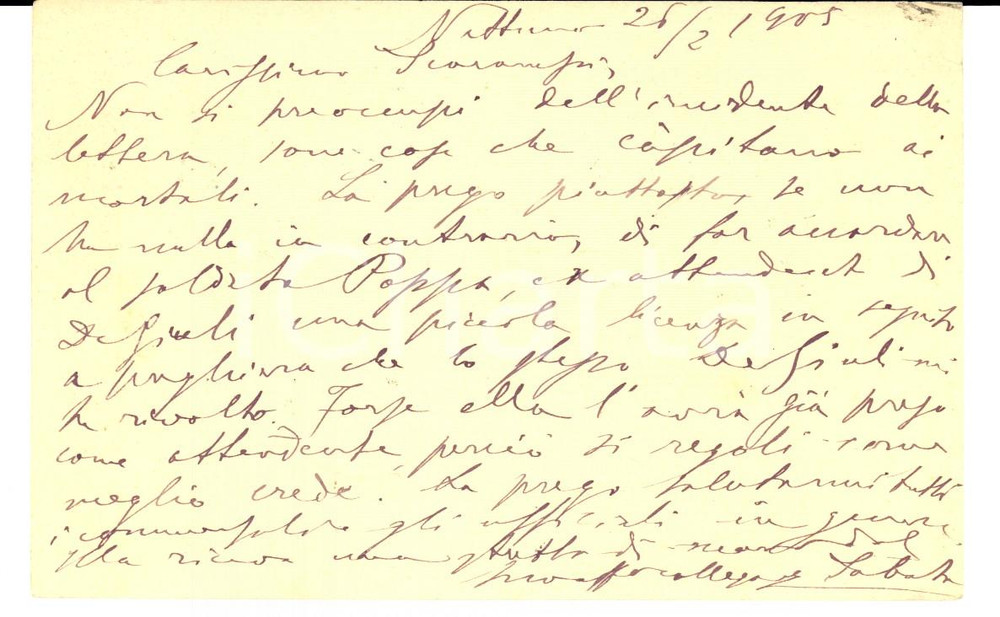 Nettuno 26/2 1905
Carissimo Scarampi,
Non si preoccupi dell'incidente della
lettera, sono cose che càpitano ai
mortali. La prego piuttosto, se non
ha nulla in contrario, di far accordare
al soldato Poppa, ex attendente di
De Giuli una piccola licenza in seguito
a preghiera che lo stesso De Giuli mi
ha rivolto. Forse ella l'avrà già preso
come attendente, perciò si regoli come
meglio crede. La prego salutarmi tutti
gli ufficiali in genere
Ella riceva una stretta di mano dal
suo aff collega